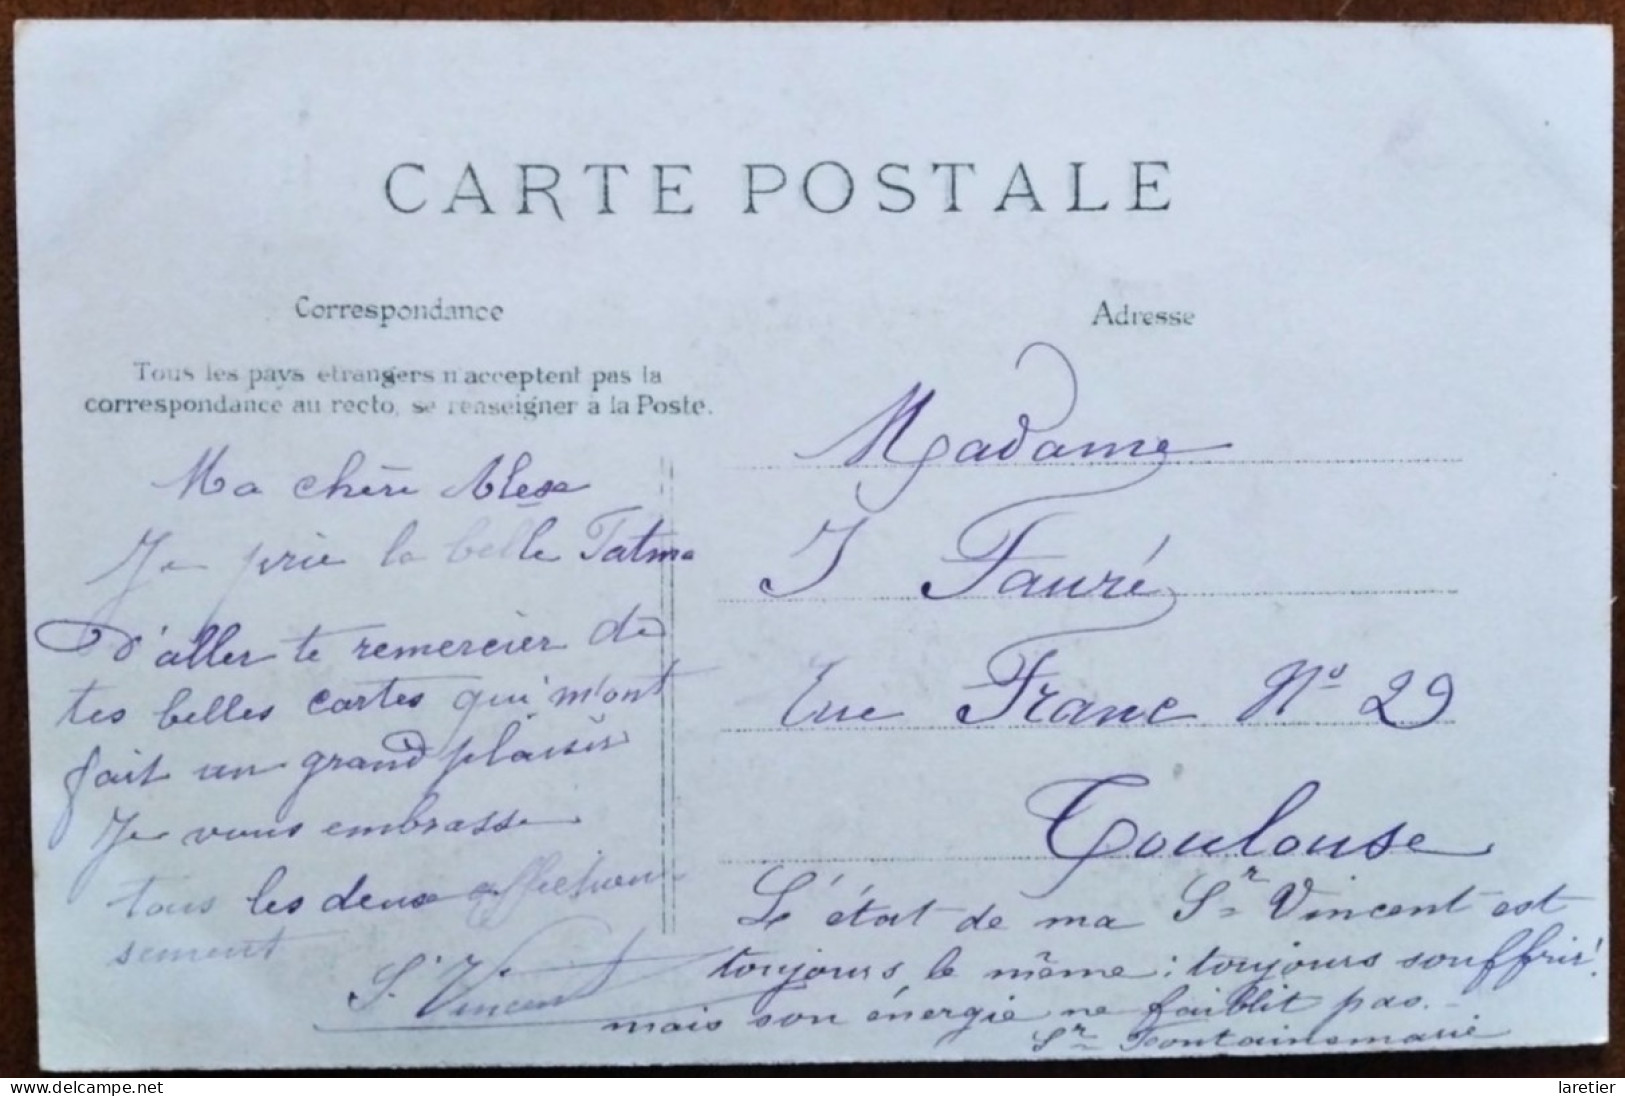 CARTE POSTALE
Correspondance
Tous les pays etrangers n'acceptent pas la
correspondance au recto, se renseigner à la Poste.
Ma chère
Je prie la belle Fatma
d'aller te remercier de
tes belles cartes qui m'ont
fait un grand plaisir
Je vous embrasse
tous les deux affectueu
sement
Sr Vincent
Adresse
Madame
J Fauré
Rue Franc No 29
Toulouse
L'état de ma Sr Vincent est
toujours le même : toujours souffrir!
mais son énergie ne faiblit pas. -
Sr Fontainemarie
laretier